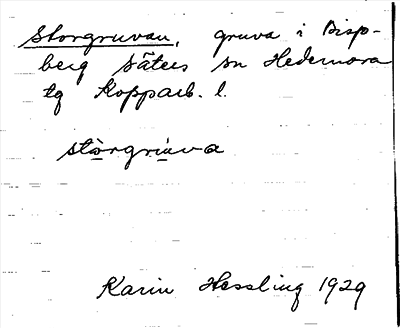 Storgruvan, gruva i Bisp-
berg Säters sn Hedemora
tg Kopparb. l.
stòrgrùva
Karin Hessling 1929